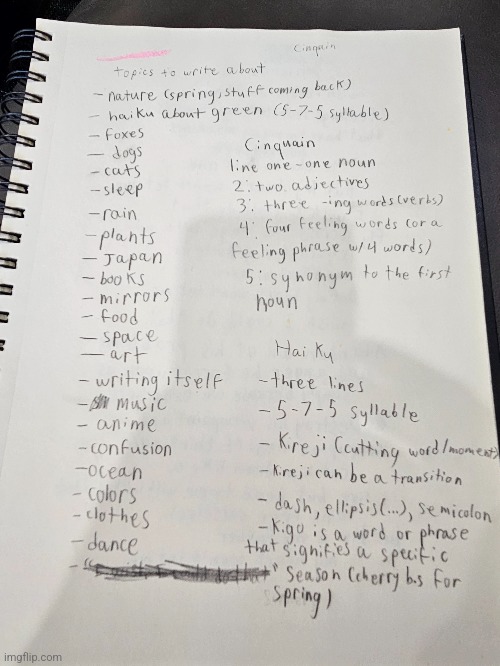 Cinquain
topics to write about
- nature (spring, stuff coming back)
- haiku about green (5-7-5 syllable)
- foxes
- dogs
- cats
- sleep
- rain
- plants
- Japan
- books
- mirrors
- food
- space
- art
- writing itself
- music
- anime
- confusion
- ocean
- colors
- clothes
- dance
-
Cinquain
line one - one noun
2: two adjectives
3: three -ing words (verbs)
4: four feeling words (or a
feeling phrase w/ 4 words)
5: synonym to the first
noun
Hai Ku
- three lines
- 5-7-5 syllable
- Kireji (cutting word/moment)
- Kireji can be a transition
- dash, ellipsis (...), semicolon
- Kigo is a word or phrase
that signifies a specific
season (cherry b.s for
spring)
imgflip.com